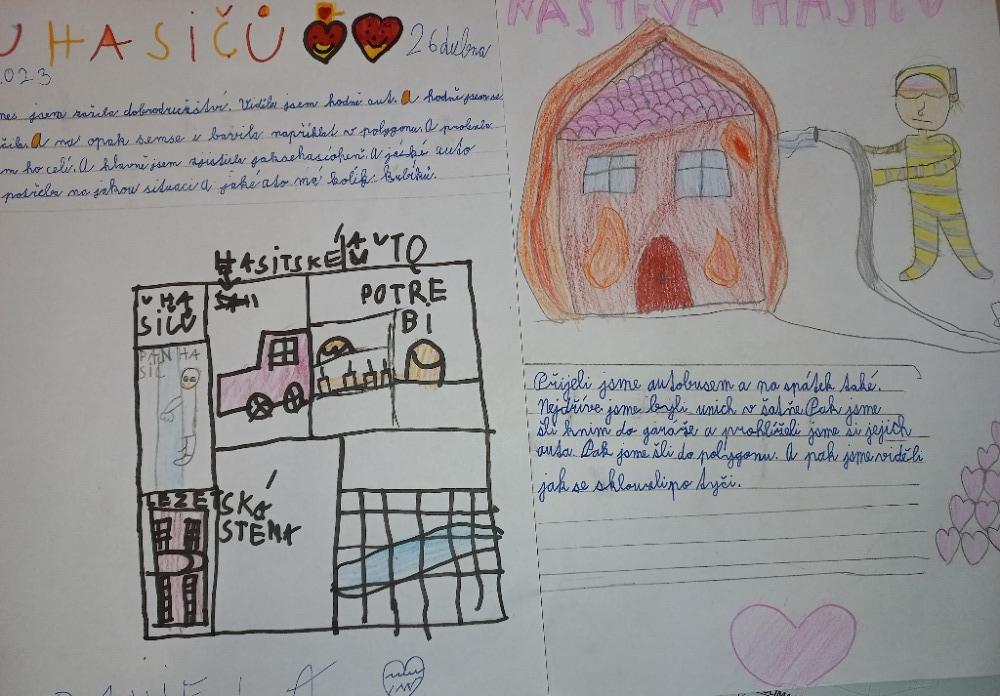 U HASIČŮ
26 dubna
2023
jsem zažila dobrodružství. Viděla jsem hodně aut. A hodně jsem se
A na opak semse i bavila napříklat v polygonu. A prolezla
m ho celí. A hlavně jsem zjistila jaksehasíoheň. A jaské auto
potřeba na jakou situaci A jaké ato má kolik
HASITSKÉ AUTO
U HA
SIČŮ
POTŘE
BI
PAN HA
SIČ
LEZETSKÁ
STĚNA
NÁŠTEVA HASIČŮ
Přijeli jsme autobusem a na spátek také.
Nejdříve jsme byli unich v šatňe Pak jsme
šli knim do garáže a prohlíželi jsme si jejich
auta. Pak jsme šli do polygonu. A pak jsme viděli
jak se sklouzli po tyči.